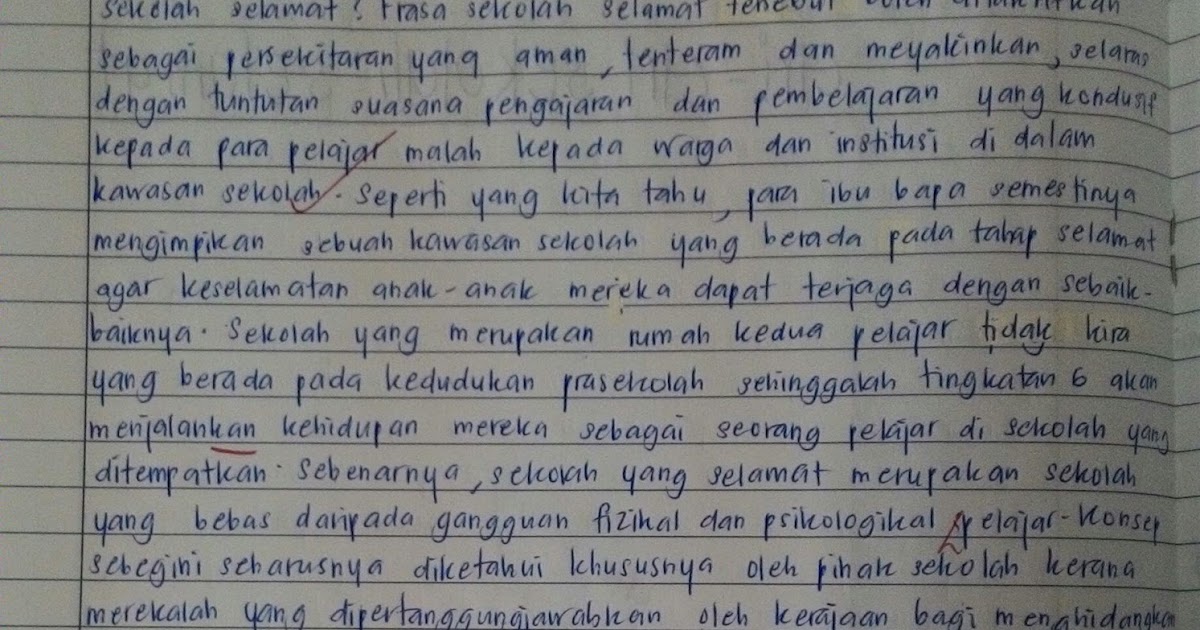 sekolah selamat? Frasa sekolah selamat tersebut boleh
sebagai persekitaran yang aman, tenteram dan meyakinkan, selaras
dengan tuntutan suasana pengajaran dan pembelajaran yang kondusif
kepada para pelajar malah kepada warga dan institusi di dalam
kawasan sekolah. Seperti yang kita tahu, para ibu bapa semestinya
mengimpikan sebuah kawasan sekolah yang berada pada tahap selamat
agar keselamatan anak-anak mereka dapat terjaga dengan sebaik-
baiknya. Sekolah yang merupakan rumah kedua pelajar tidak kira
yang berada pada kedudukan prasekolah sehinggalah tingkatan 6 akan
menjalankan kehidupan mereka sebagai seorang pelajar di sekolah yang
ditempatkan. Sebenarnya, sekolah yang selamat merupakan sekolah
yang bebas daripada gangguan fizikal dan psikologikal pelajar. Konsep
sebegini seharusnya diketahui khususnya oleh pihak sekolah kerana
merekalah yang dipertanggungjawabkan oleh kerajaan bagi menghidangkan